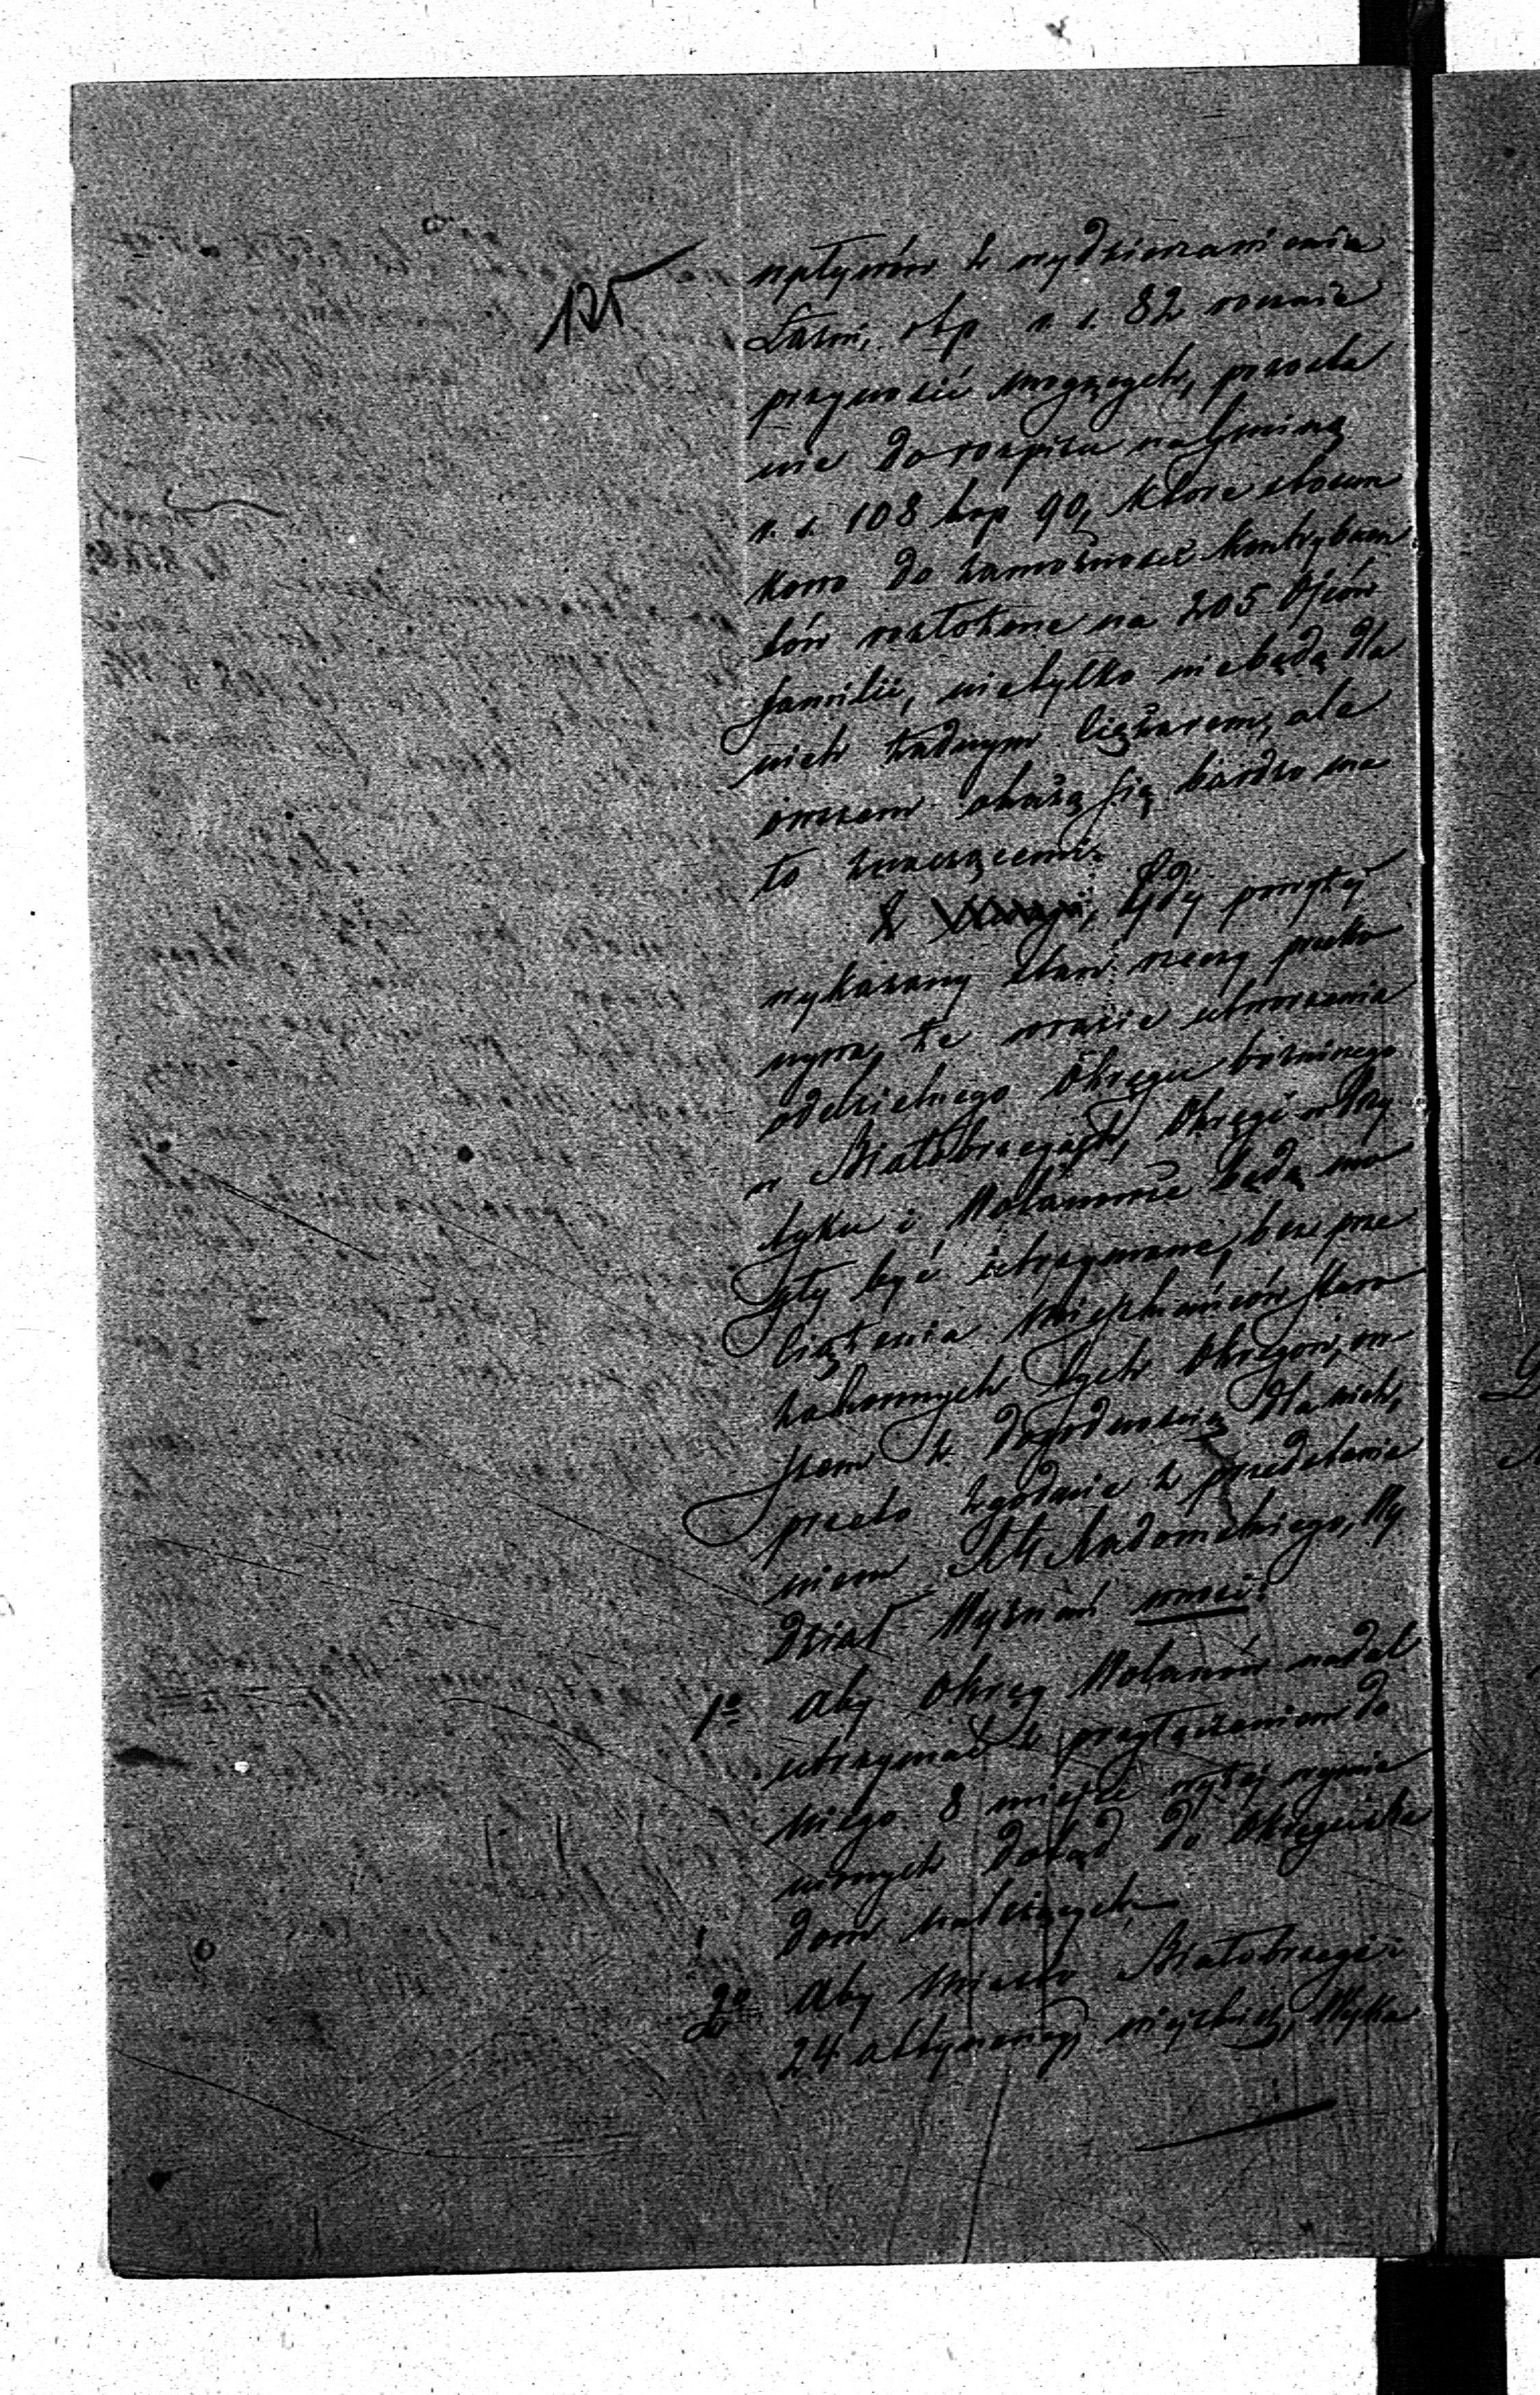 125
wpływów z wydzierzawienia
Łaźni, rbp r. s. 82 rocznie
przynosić mogących, pozosta
nie do rozpisu na Gminę
r. s. 108 kop 90, które stosun
kowo do zamożności kontrybuen
tów rozłożone na 205 Ojców
familii, nietylko niebędą dla
nich żadnym ciężarem, ale
owszem okażą się bardzo ma
ło znaczącemi.
Z Gdy powyżej
wykazany stan rzeczy przeko
nywa, że w razie utworzenia
oddzielnego Okręgu bóżniczego
w Białobrzegach, Okręgi w Przy
tyku i Wolanowie będą mo
gły być utrzymane, bez prze
ciążenia Mieszkańców Staro
zakonnych tych Okręgów, ow
szem z dogodnością dla nich,
przeto zgodnie z przedstawie
niem Radomskiego, Wy
dział Wyznań wnosi:
1o Aby Okręg Wolanów nadal
utrzymać z przyłączeniem do
niego 8 miejsc wyżej wymie
nionych dotąd do Okręgu Ra
dom należących
2o Aby Miasto Białobrzegi i
24 attynencyj wiejskich, Wyka